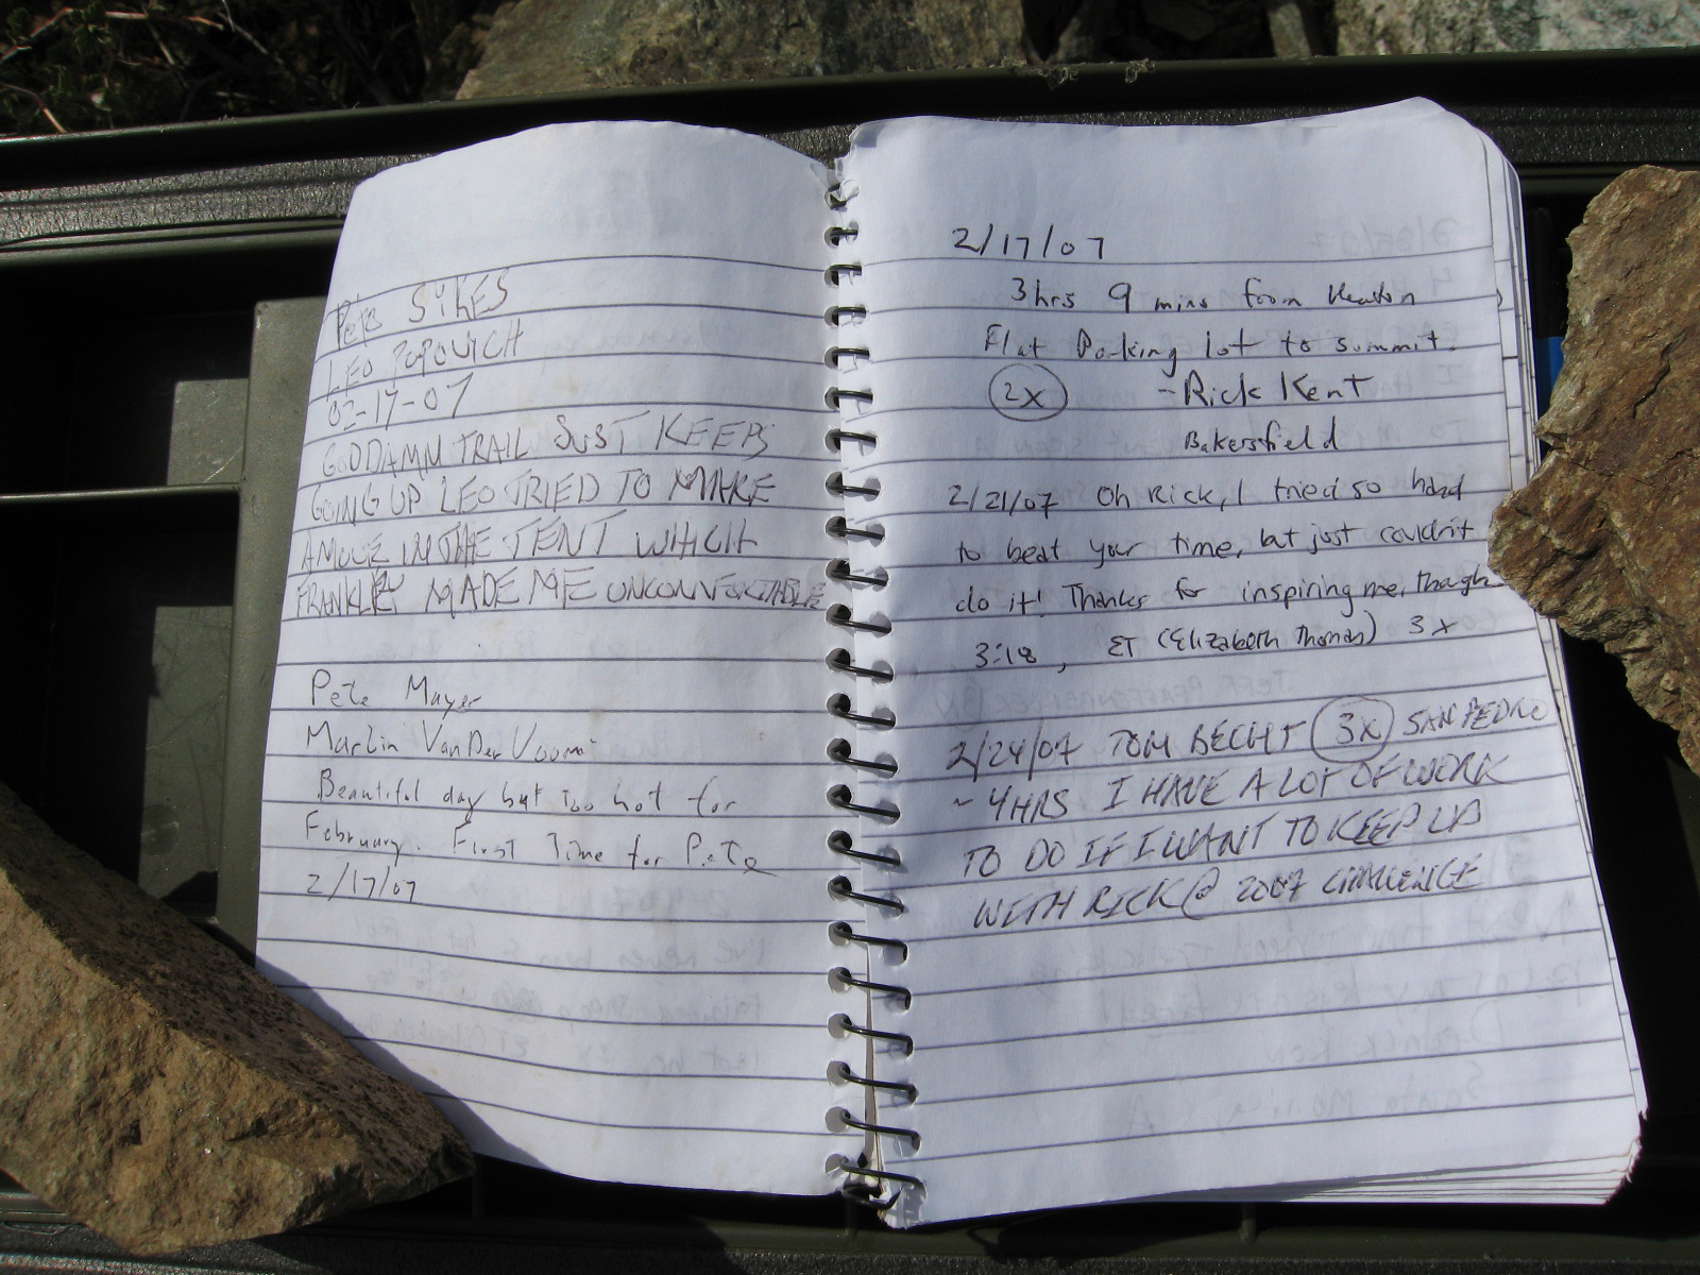 Pete SYKES
LEO POPOVICH
02-17-07
GODDAMN TRAIL JUST KEEPS
GOING UP LEO TRIED TO MAKE
A MOVE IN THE TENT WHICH
MADE ME
Pete Mayer
Marlin VanDer
Beautiful day but too hot for
February. First Time for Pete
2/17/07
2/17/07
3hrs 9 mins from Heaton
Flat Parking lot to summit.
2x - Rick Kent
Bakersfield
2/21/07 Oh Rick, I tried so hard
to beat your time, but just couldn't
do it! Thanks for inspiring me, though
3:18, ET (Elizabeth Thomas) 3x
2/24/07 TOM BECHT 3X SAN PEDRO
~ 4HRS I HAVE A LOT OF WORK
TO DO IF I WANT TO KEEP UP
WITH RICK @ 2007 CHALLENGE